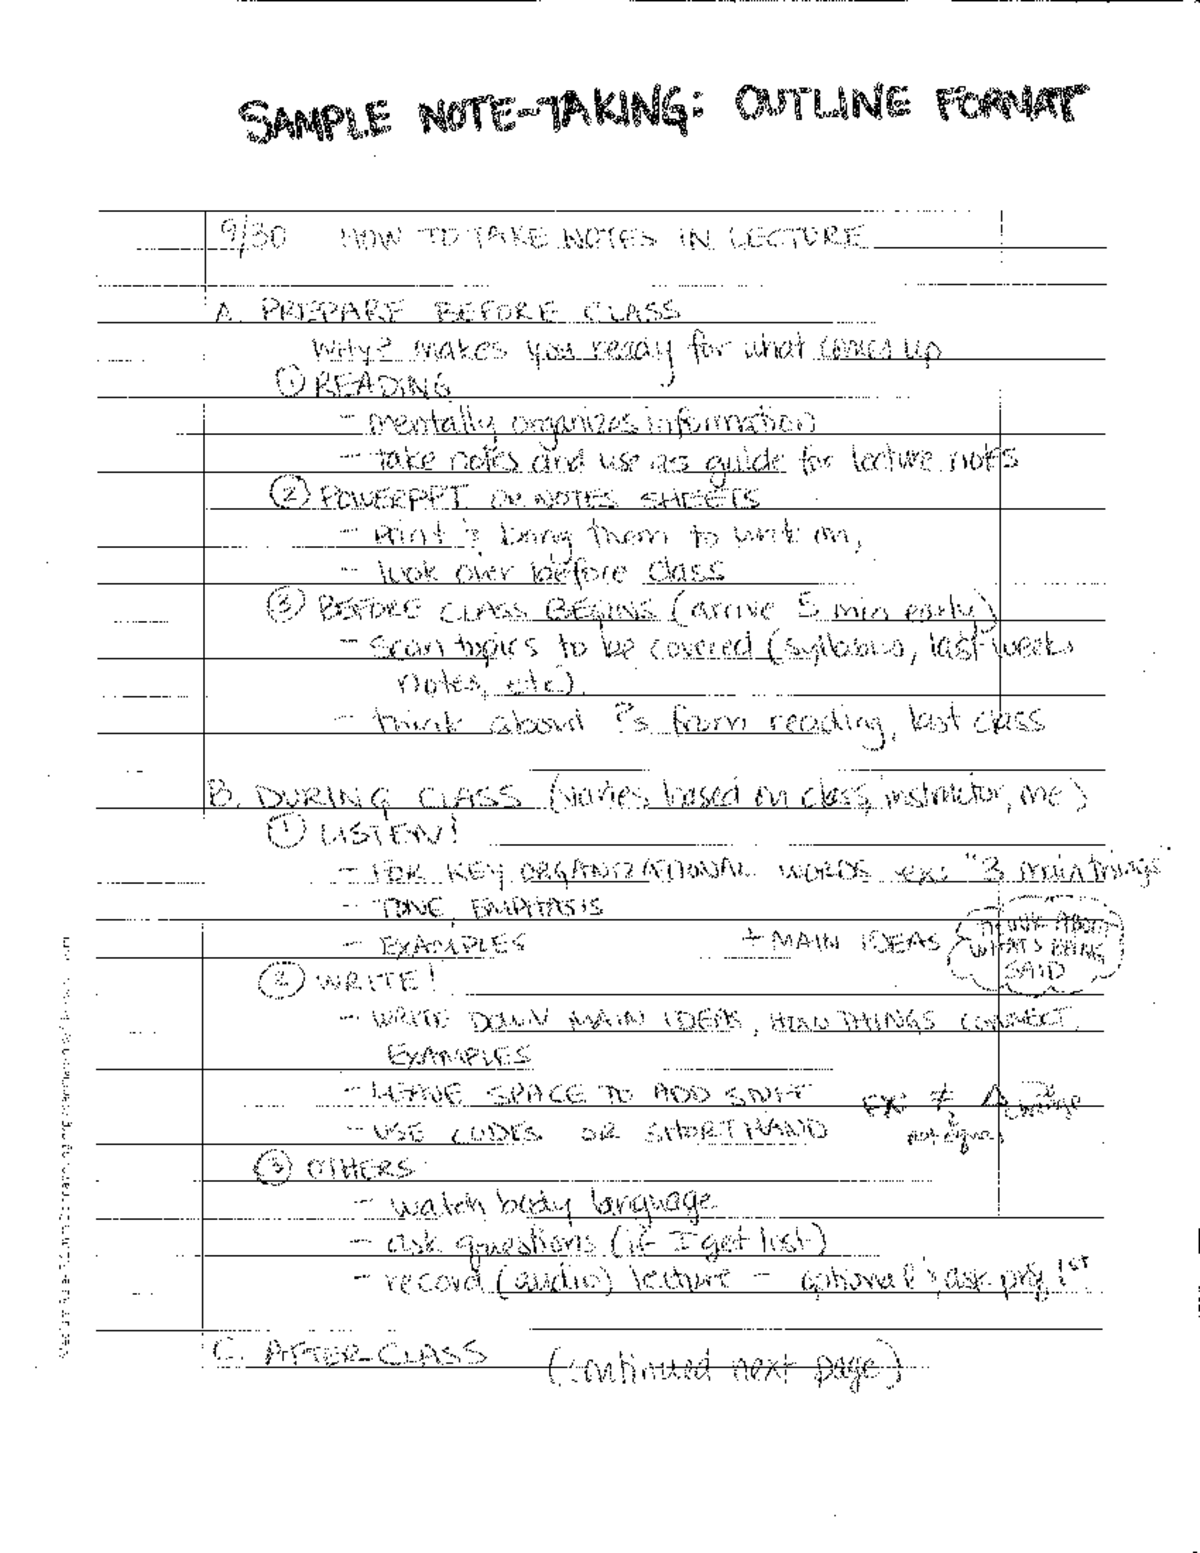 SAMPLE NOTE-TAKING: OUTLINE FORMAT
9/30 HOW TO TAKE NOTES IN LECTURE
A. PREPARE BEFORE CLASS
Why? makes you ready for what comes up
① READING
- mentally organizes information
- take notes and use as guide for lecture notes
② POWERPPT OR NOTES SHEETS
- Print & bring them to write on,
- look over before class
③ BEFORE CLASS BEGINS (arrive 5 min early)
- Scan topics to be covered (syllabus, last weeks
notes, etc).
- think about ?s from reading, last class
B. DURING CLASS (varies based on class, instructor, me)
① LISTEN!
- FOR KEY ORGANIZATIONAL WORDS ex: "3 main things"
- TONE, EMPHASIS
- EXAMPLES + MAIN IDEAS
THINK ABOUT
WHAT'S BEING
SAID
② WRITE!
- WRITE DOWN MAIN IDEAS, HOW THINGS CONNECT,
EXAMPLES
- LEAVE SPACE TO ADD STUFF EX: ≠ Δ change
- USE CODES OR SHORTHAND not equal
③ OTHERS
- watch body language
- ask questions (if I get lost)
- record (audio) lecture - optional; ask prof. 1st
C. AFTER CLASS (continued next page)